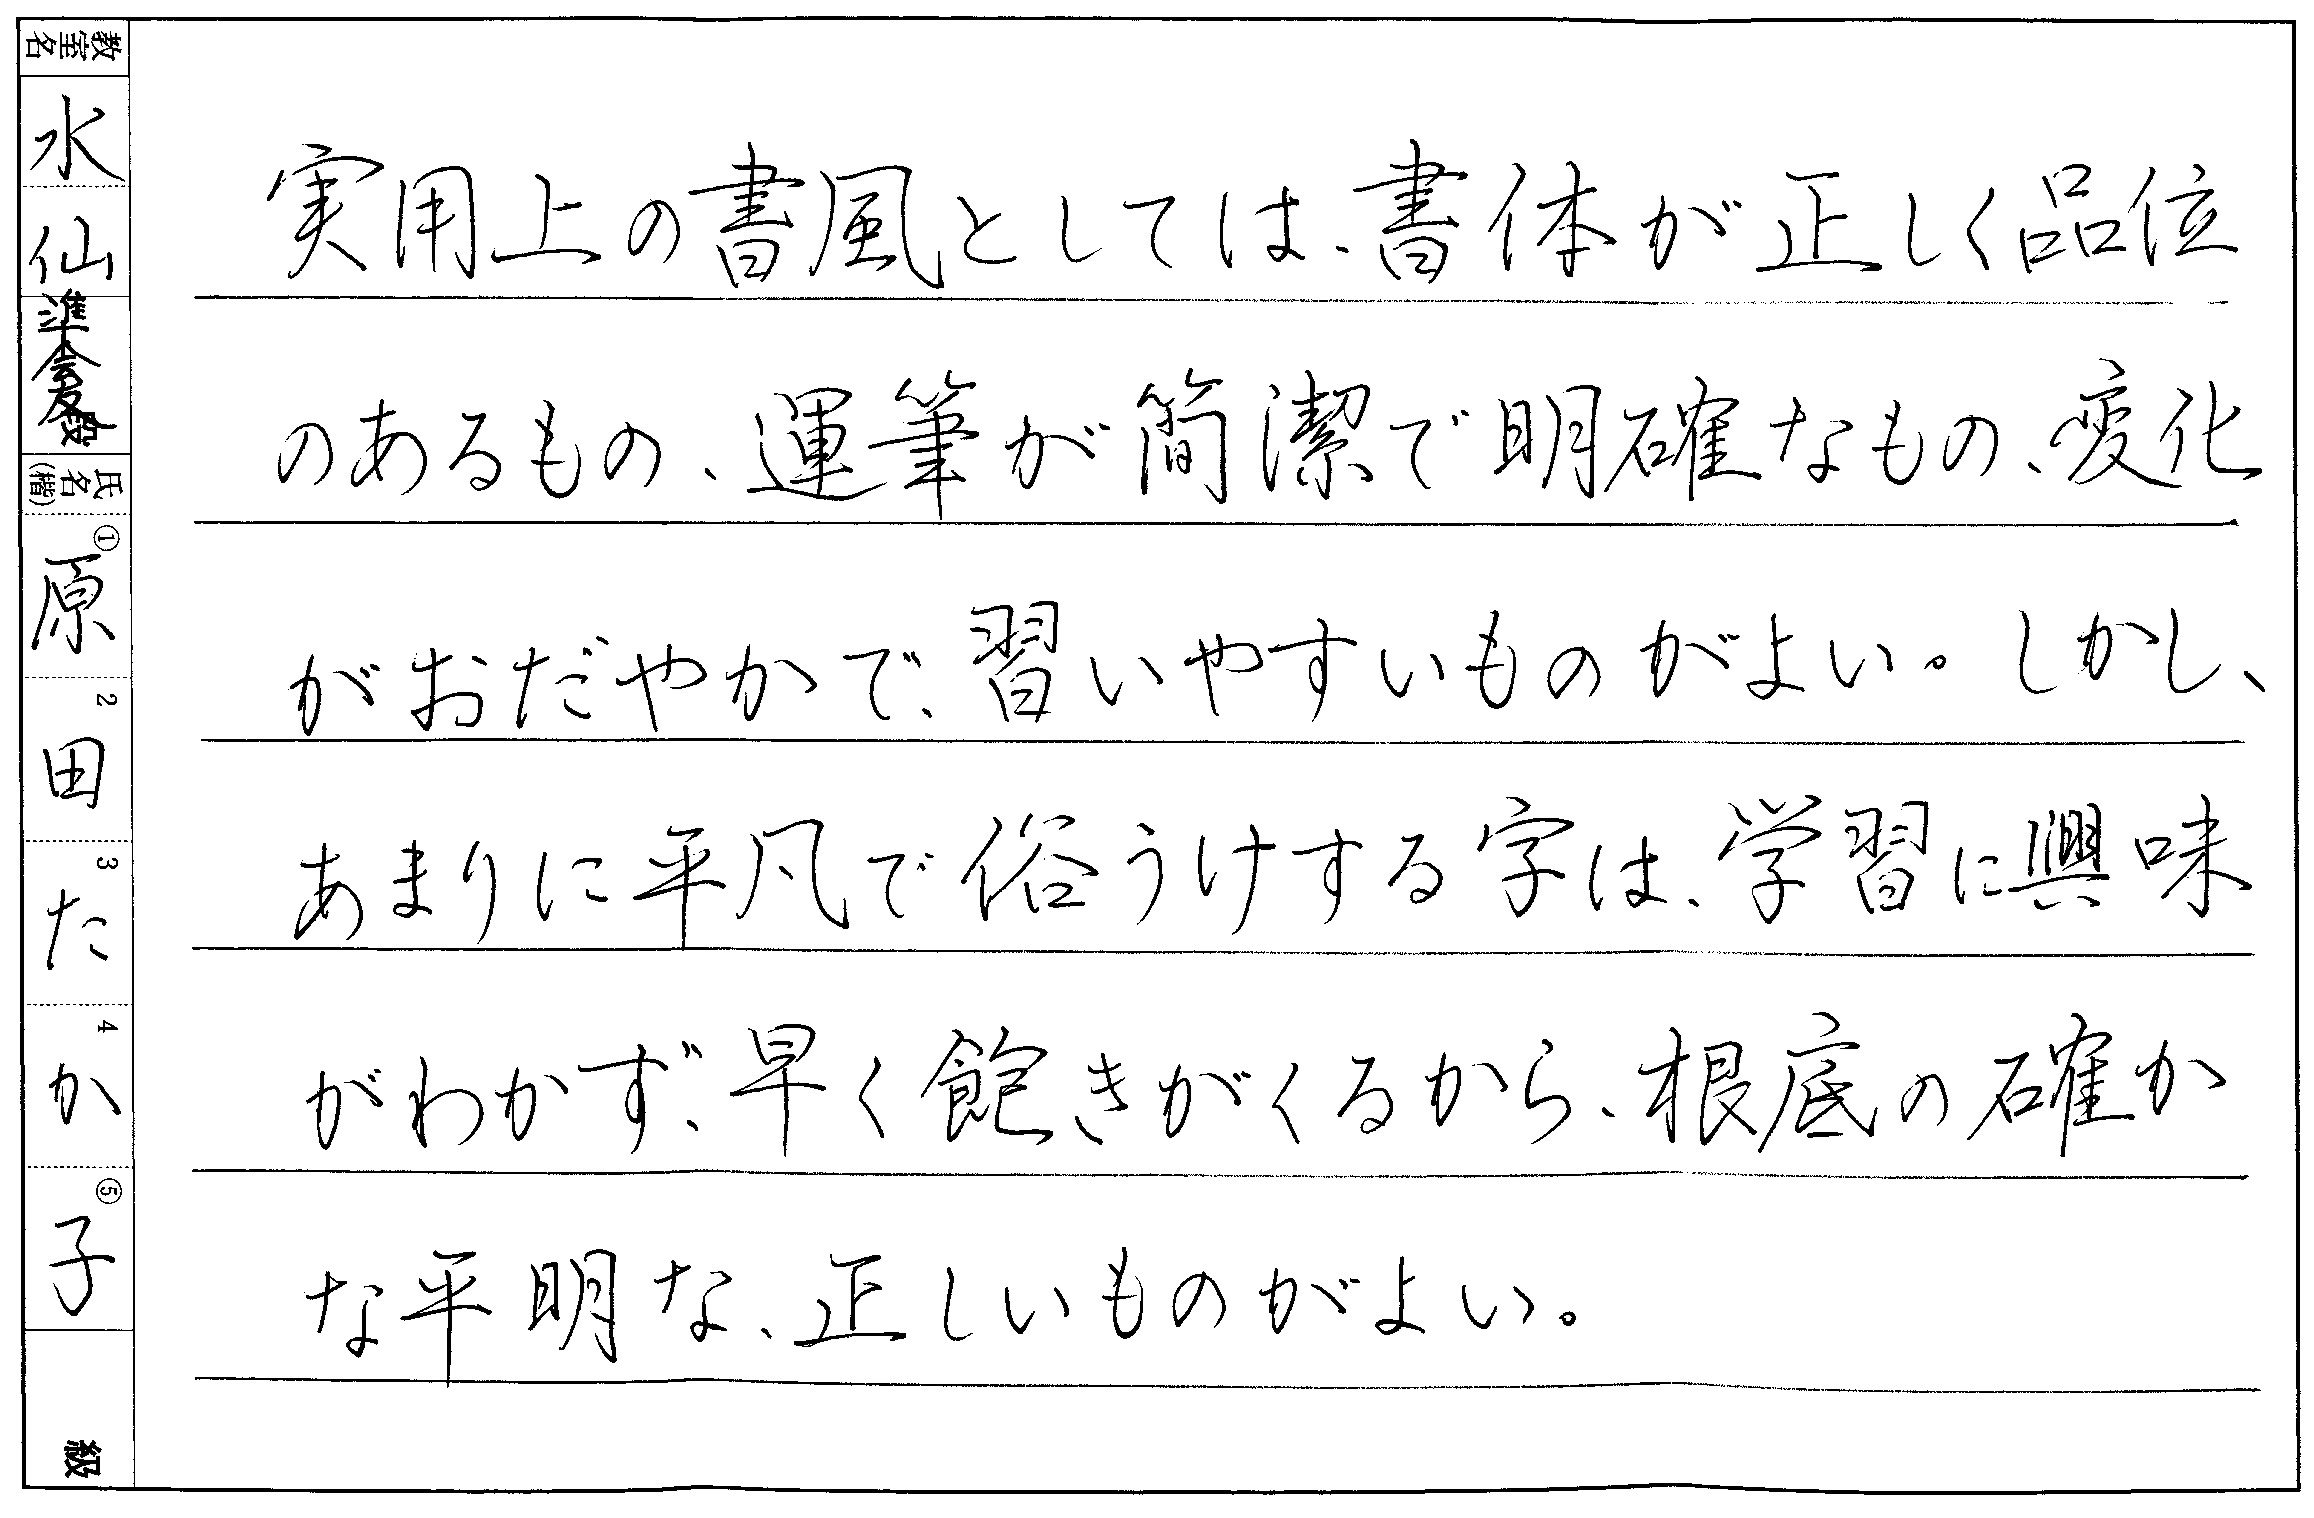 実用上の書風としては、書体が正しく品位
のあるもの、運筆が簡潔で明確なもの、変化
がおだやかで、習いやすいものがよい。しかし、
あまりに平凡で俗うけする字は、学習に興味
がわかず、早く飽きがくるから、根底の確か
な平明な、正しいものがよい。
教室名
水仙
準
段
氏名(楷)
①原
2田
3た
4か
⑤子
級